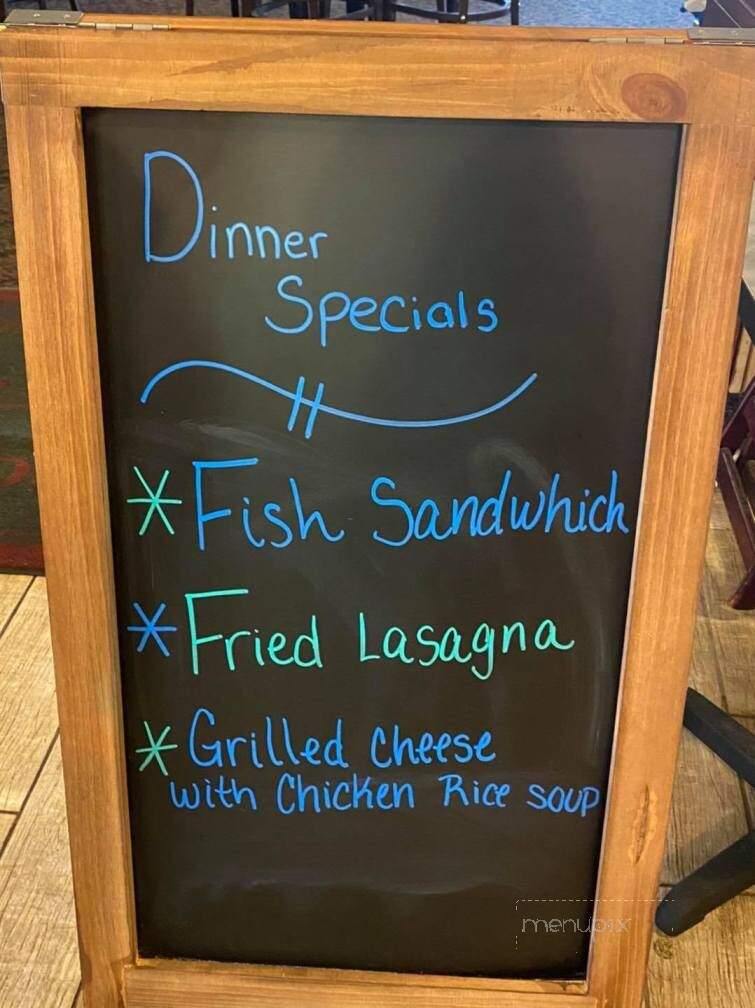 Dinner
Specials
* Fish Sandwhich
* Fried Lasagna
* Grilled cheese
with Chicken Rice soup
menupix